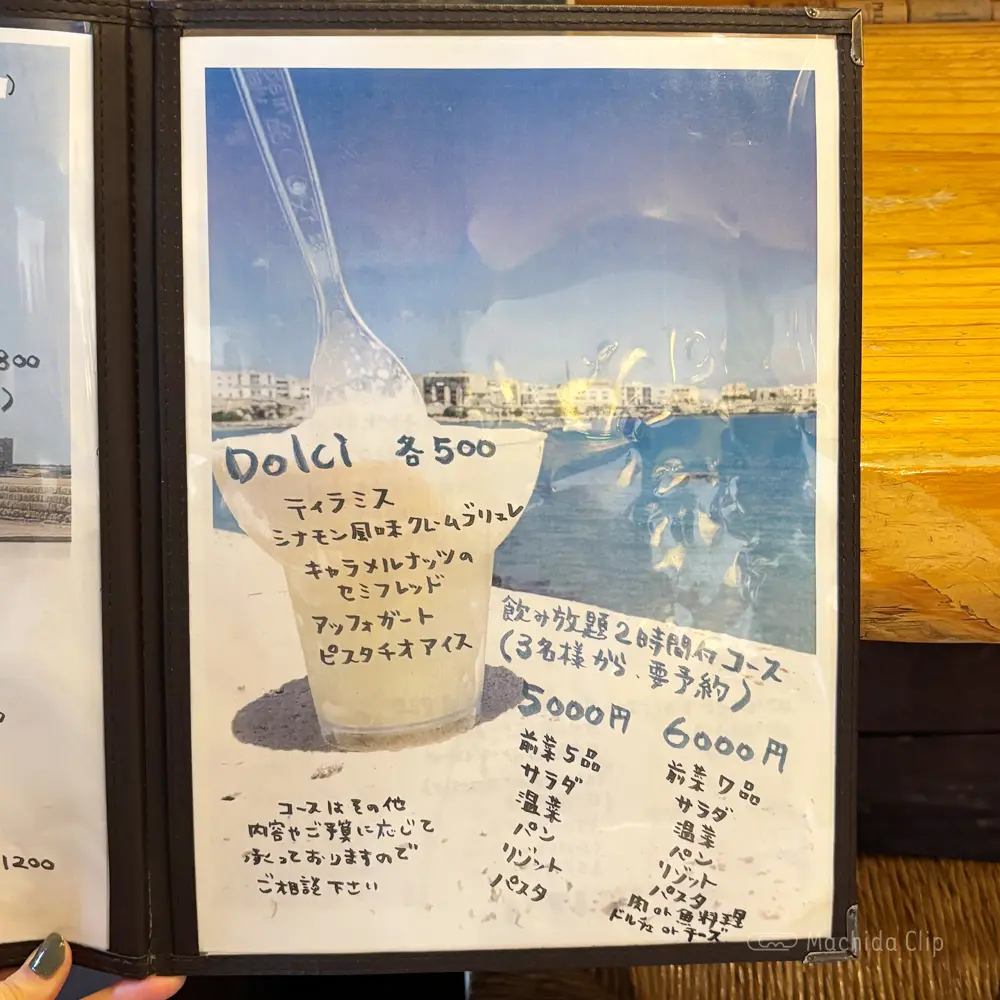 800
)
1200
Dolci 各500
ティラミス
シナモン風味クレームブリュレ
キャラメルナッツの
セミフレッド
アッフォガート
ピスタチオアイス
飲み放題2時間付コース
(3名様から、要予約)
5000円
前菜5品
サラダ
温菜
パン
リゾット
パスタ
6000円
前菜7品
サラダ
温菜
パン
リゾット
パスタ
肉or魚料理
ドルチェorチーズ
コースはその他
内容やご予算に応じて
承っておりますので
ご相談下さい
Machida Clip